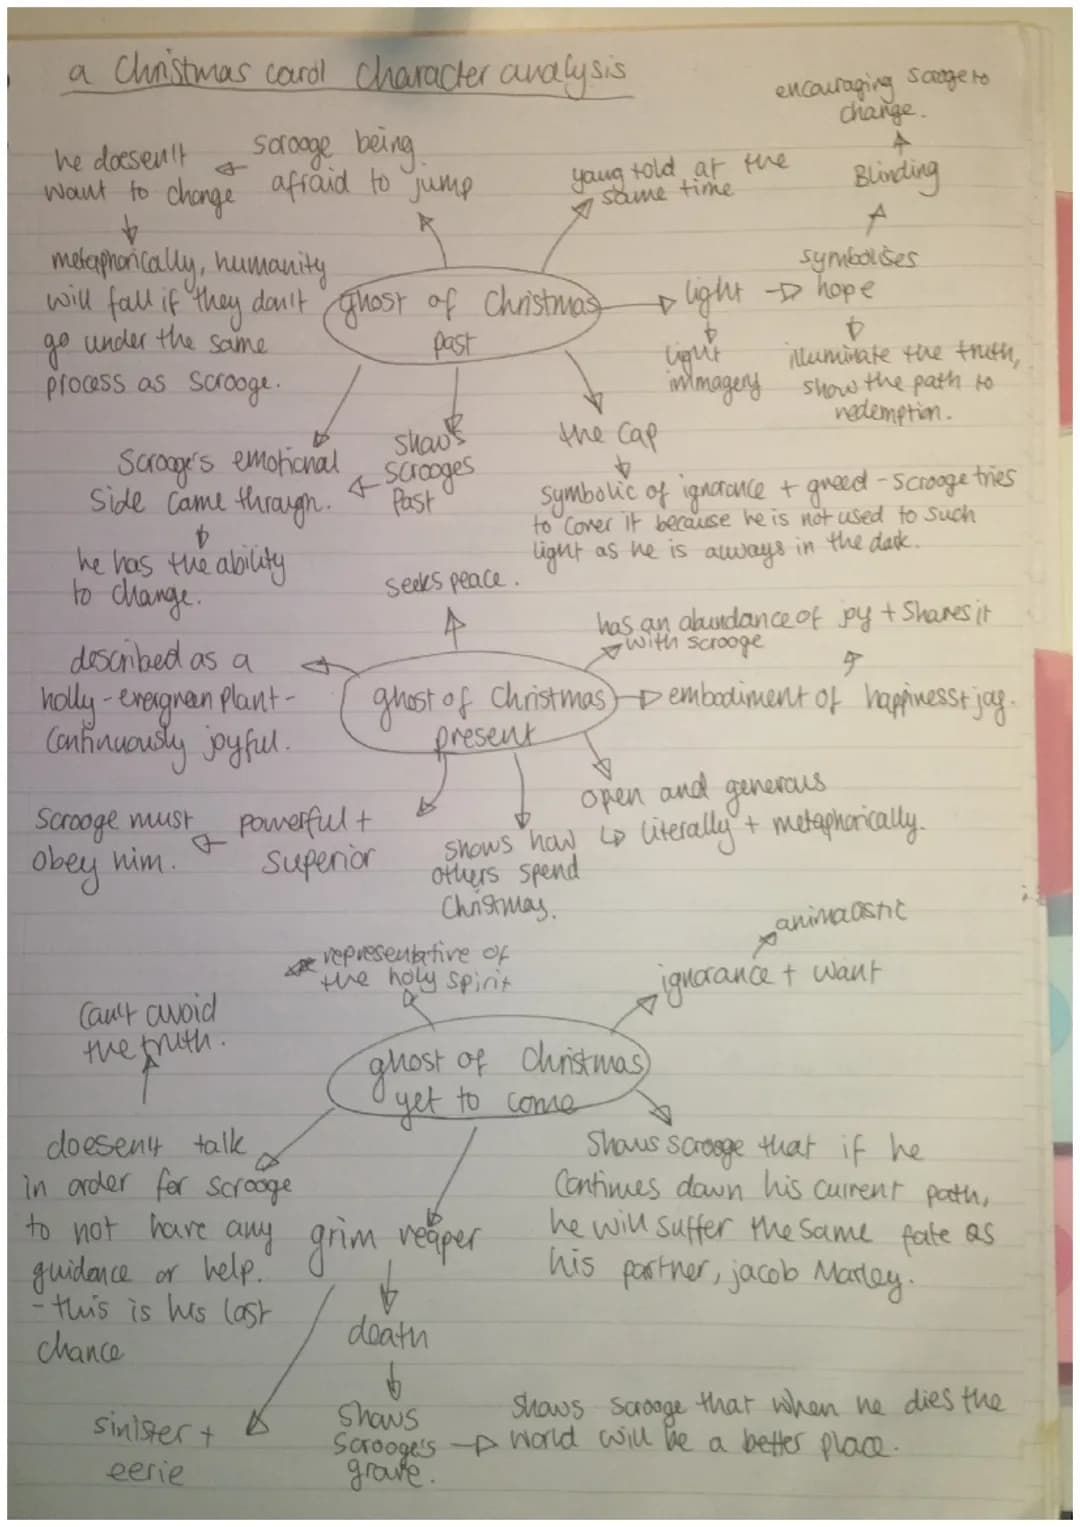 a Christmas carol character analysis
encouraging Scrooge to
change.
Blinding
symbolises
hope
illuminate the truth,
show the path to
redemption.
light
light
immagery
young + old at the
same time
scrooge being
afraid to jump
he doesen't
want to change
metaphorically, humanity
will fall if they don't
go under the same
process as scrooge.
ghost of Christmas
past
the cap
symbolic of ignorance + greed - scrooge tries
to cover it because he is not used to such
light as he is always in the dark.
shows
scrooges
past
Scrooge's emotional
side came through.
he has the ability
to change.
seeks peace.
has an abundance of joy + shares it
with scrooge
described as a
holly - evergreen plant -
continuously joyful.
ghost of Christmas
present
embodiment of happiness + joy.
open and generous
literally + metaphorically.
shows how
others spend
Christmas.
powerful +
superior
Scrooge must
obey him.
animalistic
ignorance + want
representative of
the holy spirit
can't avoid
the truth.
ghost of Christmas
yet to come
doesen't talk
in order for scrooge
to not have any
guidance or help.
- this is his last
chance
grim reaper
death
shows
scrooge's
grave.
shows scrooge that when he dies the
world will be a better place.
shows scrooge that if he
continues down his current path,
he will suffer the same fate as
his partner, jacob Marley.
sinister +
eerie